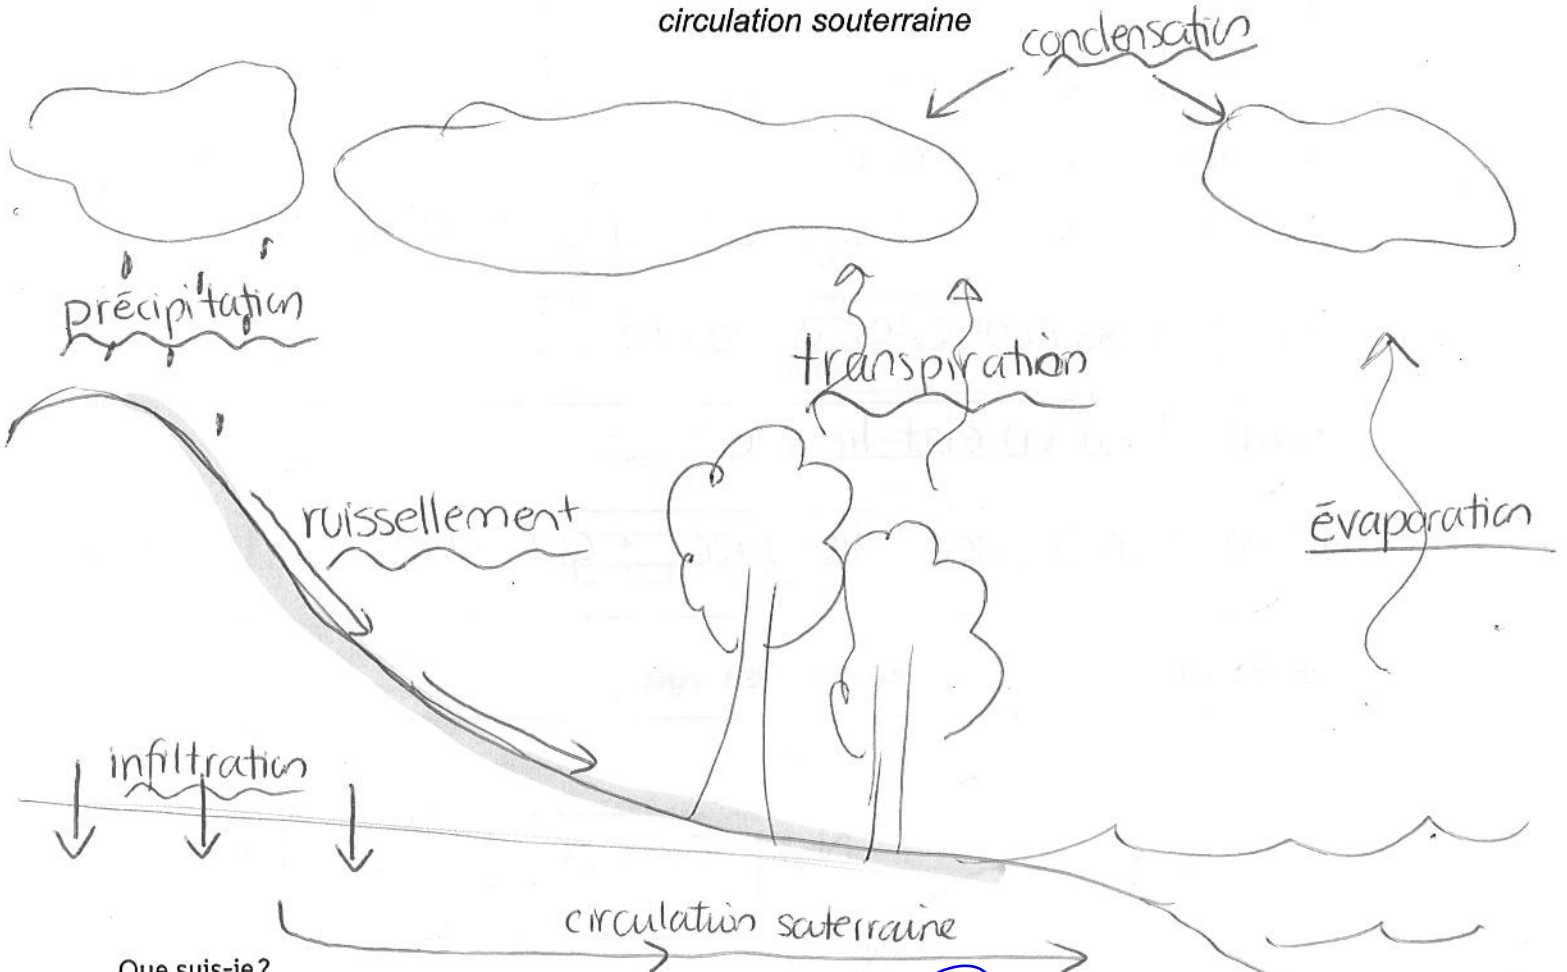 circulation souterraine
condensation
précipitation
transpiration
ruissellement
évaporation
infiltration
circulation souterraine
Que suis-je?